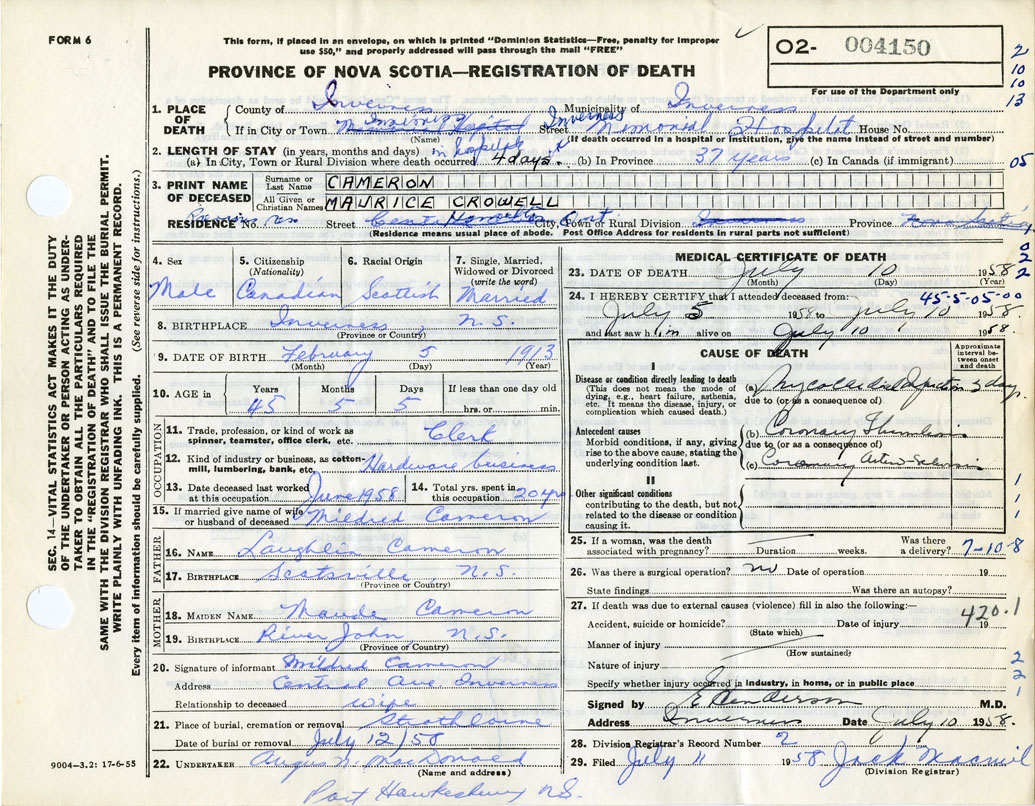 FORM 6
This form, if placed in an envelope, on which is printed "Dominion Statistics—Free, penalty for improper
use $50," and properly addressed will pass through the mail "FREE"
PROVINCE OF NOVA SCOTIA—REGISTRATION OF DEATH
O2- 004150
For use of the Department only
2
10
10
13
1. PLACE OF DEATH
County of Inverness Municipality of Inverness
If in City or Town Inverness Street Inverness Memorial Hospital House No.
(Name) (If death occurred in a hospital or institution, give the name instead of street and number)
2. LENGTH OF STAY (in years, months and days) in hospital
(a) In City, Town or Rural Division where death occurred 4 days. (b) In Province 37 years (c) In Canada (if immigrant) 05
3. PRINT NAME OF DECEASED
Surname or Last Name CAMERON
All Given or Christian Names MAURICE CROWELL
RESIDENCE No. Street City, Town or Rural Division Province
(Residence means usual place of abode. Post Office Address for residents in rural parts not sufficient)
4. Sex 5. Citizenship (Nationality) 6. Racial Origin 7. Single, Married, Widowed or Divorced (write the word)
Male Canadian Scottish Married
8. BIRTHPLACE Inverness, N.S.
(Province or Country)
9. DATE OF BIRTH February 5 1913
(Month) (Day) (Year)
10. AGE in Years Months Days If less than one day old
45 5 5 hrs. or min.
OCCUPATION
11. Trade, profession, or kind of work as spinner, teamster, office clerk, etc. Clerk
12. Kind of industry or business, as cotton-mill, lumbering, bank, etc. Hardware business
13. Date deceased last worked at this occupation June 1958 14. Total yrs. spent in this occupation 20 yrs
15. If married give name of wife or husband of deceased Mildred Cameron
FATHER
16. NAME Laughlin Cameron
17. BIRTHPLACE Scotsville, N.S.
(Province or Country)
MOTHER
18. MAIDEN NAME Maude Cameron
19. BIRTHPLACE River John, N.S.
(Province or Country)
20. Signature of informant Mildred Cameron
Address Central Ave. Inverness
Relationship to deceased wife
21. Place of burial, cremation or removal Strathlorne
Date of burial or removal July 12/58
22. UNDERTAKER Angus N. MacDonald
(Name and address)
Port Hawkesbury N.S.
9004-3.2: 17-6-55
MEDICAL CERTIFICATE OF DEATH
23. DATE OF DEATH July 10 1958
(Month) (Day) (Year)
0
2
2
24. I HEREBY CERTIFY that I attended deceased from: 45-5-05-00
July 5 1958 to July 10 1958
and last saw him alive on July 10 1958.
CAUSE OF DEATH
Approximate interval between onset and death
I
Disease or condition directly leading to death
(This does not mean the mode of dying, e.g., heart failure, asthenia, etc. It means the disease, injury, or complication which caused death.)
(a) Myocardial Infarction 3 days.
due to (or as a consequence of)
Antecedent causes
Morbid conditions, if any, giving rise to the above cause, stating the underlying condition last.
(b) Coronary Thrombosis
due to (or as a consequence of)
(c) Coronary Arterio Sclerosis
II
Other significant conditions
contributing to the death, but not related to the disease or condition causing it.
1
1
1
25. If a woman, was the death associated with pregnancy? Duration weeks. Was there a delivery? 7-10-8
26. Was there a surgical operation? no Date of operation 19
State findings Was there an autopsy?
27. If death was due to external causes (violence) fill in also the following:—
420.1
Accident, suicide or homicide? Date of injury 19
(State which)
Manner of injury
(How sustained)
Nature of injury
Specify whether injury occurred in industry, in home, or in public place
2
2
1
Signed by E Henderson M.D.
Address Inverness Date July 10 1958.
28. Division Registrar's Record Number 2
29. Filed July 11 1958 Jack Macneil
(Division Registrar)
SEC. 14—VITAL STATISTICS ACT MAKES IT THE DUTY
OF THE UNDERTAKER OR PERSON ACTING AS UNDER-
TAKER TO OBTAIN ALL THE PARTICULARS REQUIRED
IN THE "REGISTRATION OF DEATH" AND TO FILE THE
SAME WITH THE DIVISION REGISTRAR WHO SHALL ISSUE THE BURIAL PERMIT.
WRITE PLAINLY WITH UNFADING INK. THIS IS A PERMANENT RECORD.
Every item of information should be carefully supplied. (See reverse side for instructions.)